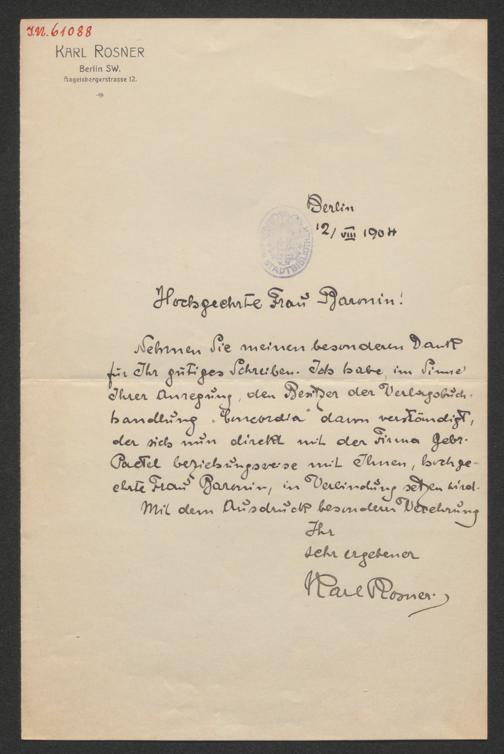 I.N. 61088
KARL ROSNER
Berlin SW.
Hagelsbergerstrasse 12.
Berlin
12/VIII 1904
STADTBIBLIOTHEK
Hochgeehrte Frau Baronin!
Nehmen Sie meinen besonderen Dank
für Ihr gütiges Schreiben. Ich habe, im Sinne
Ihrer Anregung, den Besitzer der Verlagsbuch-
handlung „Concordia" davon verständigt,
der sich nun direkt mit der Firma Gebr.
Paetel beziehungsweise mit Ihnen, hochge-
ehrte Frau Baronin, in Verbindung setzen wird.
Mit dem Ausdruck besonderer Verehrung
Ihr
sehr ergebener
Karl Rosner.